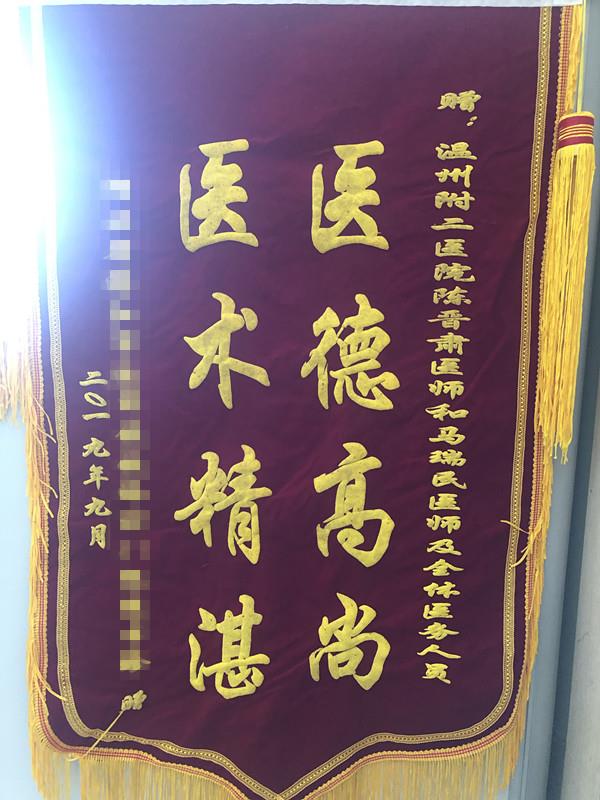 赠：温州附二医院陈晋肃医师和马瑞民医师及全体医务人员
医德高尚
医术精湛
赠
二〇一九年九月